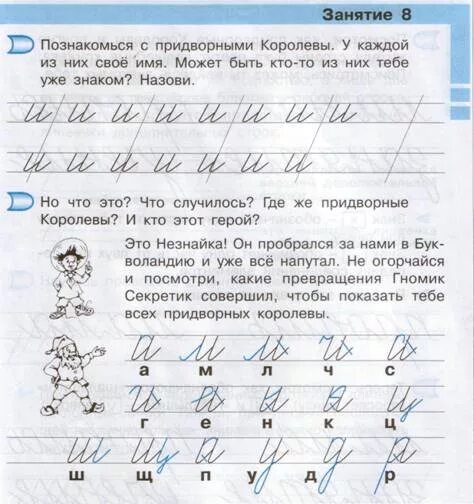 Занятие 8
Познакомься с придворными Королевы. У каждой
из них своё имя. Может быть кто-то из них тебе
уже знаком? Назови.
и и и и и и и и
и и и и и и и
Но что это? Что случилось? Где же придворные
Королевы? И кто этот герой?
Это Незнайка! Он пробрался за нами в Бук-
воландию и уже всё напутал. Не огорчайся
и посмотри, какие превращения Гномик
Секретик совершил, чтобы показать тебе
всех придворных королевы.
а м л ч с
г е н к ц
ш щ п у д р